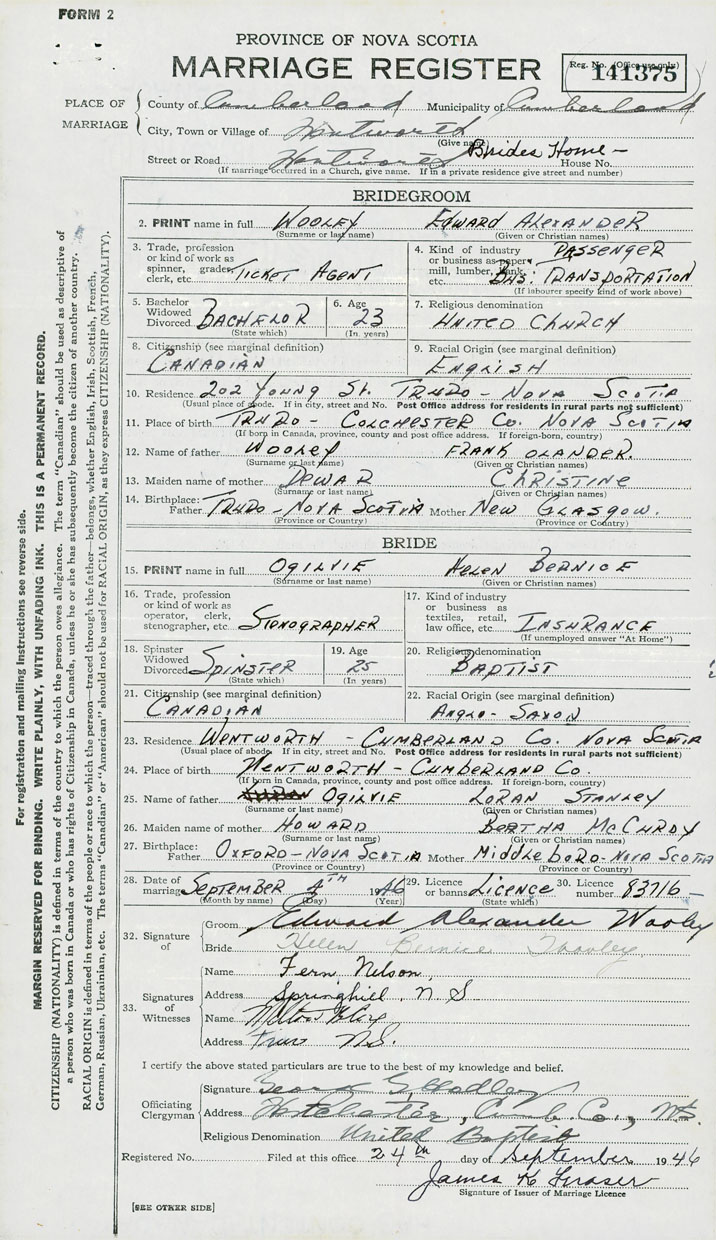 FORM 2
PROVINCE OF NOVA SCOTIA
MARRIAGE REGISTER
Reg. No. (Office use only)
141375
PLACE OF MARRIAGE
County of Cumberland Municipality of Cumberland
City, Town or Village of Wentworth
(Give name)
Brides Home -
Street or Road Wentworth House No.
(If marriage occurred in a Church, give name. If in a private residence give street and number)
BRIDEGROOM
2. PRINT name in full WOOLEY EDWARD ALEXANDER
(Surname or last name) (Given or Christian names)
3. Trade, profession or kind of work as spinner, grader, clerk, etc. TICKET AGENT
4. Kind of industry or business as paper mill, lumber, bank, etc. PASSENGER BUS: TRANSPORTATION
(If labourer specify kind of work above)
5. Bachelor Widowed Divorced BACHELOR
(State which)
6. Age 23
(In years)
7. Religious denomination UNITED CHURCH
8. Citizenship (see marginal definition) CANADIAN
9. Racial Origin (see marginal definition) ENGLISH
10. Residence 202 YOUNG St. TRURO - NOVA SCOTIA
(Usual place of abode. If in city, street and No. Post Office address for residents in rural parts not sufficient)
11. Place of birth TRURO - COLCHESTER Co. NOVA SCOTIA
(If born in Canada, province, county and post office address. If foreign-born, country)
12. Name of father WOOLEY FRANK OLANDER.
(Surname or last name) (Given or Christian names)
13. Maiden name of mother DEWAR CHRISTINE
(Surname or last name) (Given or Christian names)
14. Birthplace: Father TRURO - NOVA SCOTIA Mother NEW GLASGOW.
(Province or Country) (Province or Country)
BRIDE
15. PRINT name in full OGILVIE HELEN BERNICE
(Surname or last name) (Given or Christian names)
16. Trade, profession or kind of work as operator, clerk, stenographer, etc. STENOGRAPHER
17. Kind of industry or business as textiles, retail, law office, etc. INSURANCE
(If unemployed answer "At Home")
18. Spinster Widowed Divorced SPINSTER
(State which)
19. Age 25
(In years)
20. Religious denomination BAPTIST
21. Citizenship (see marginal definition) CANADIAN
22. Racial Origin (see marginal definition) ANGLO-SAXON
23. Residence WENTWORTH - CUMBERLAND Co. NOVA SCOTIA
(Usual place of abode. If in city, street and No. Post Office address for residents in rural parts not sufficient)
24. Place of birth WENTWORTH - CUMBERLAND Co.
(If born in Canada, province, county and post office address. If foreign-born, country)
25. Name of father OGILVIE LORAN STANLEY
(Surname or last name) (Given or Christian names)
26. Maiden name of mother HOWARD BERTHA McCURDY
(Surname or last name) (Given or Christian names)
27. Birthplace: Father OXFORD - NOVA SCOTIA Mother Middleboro - NOVA SCOTIA
(Province or Country) (Province or Country)
28. Date of marriage SEPTEMBER 4TH 1946
(Month by name) (Day) (Year)
29. Licence or banns Licence
(State which)
30. Licence number 83716 -
32. Signature of
Groom Edward Alexander Wooley
Bride Helen Bernice Wooley
33. Signatures of Witnesses
Name Fern Nelson
Address Springhill, N S
Name
Address Truro N.S.
I certify the above stated particulars are true to the best of my knowledge and belief.
Officiating Clergyman
Signature George
Address Westchester, Cumb. Co., N.S.
Religious Denomination United Baptist
Registered No. Filed at this office 24th day of September 1946
James K Fraser
Signature of Issuer of Marriage Licence
[SEE OTHER SIDE]
For registration and mailing instructions see reverse side.
MARGIN RESERVED FOR BINDING. WRITE PLAINLY, WITH UNFADING INK. THIS IS A PERMANENT RECORD.
CITIZENSHIP (NATIONALITY) is defined in terms of the country to which the person owes allegiance. The term "Canadian" should be used as descriptive of
a person who was born in Canada or who has rights of Citizenship in Canada, unless he or she has subsequently become the citizen of another country.
RACIAL ORIGIN is defined in terms of the people or race to which the person—traced through the father—belongs, whether English, Irish, Scottish, French,
German, Russian, Ukrainian, etc. The terms "Canadian" or "American" should not be used for RACIAL ORIGIN, as they express CITIZENSHIP (NATIONALITY).